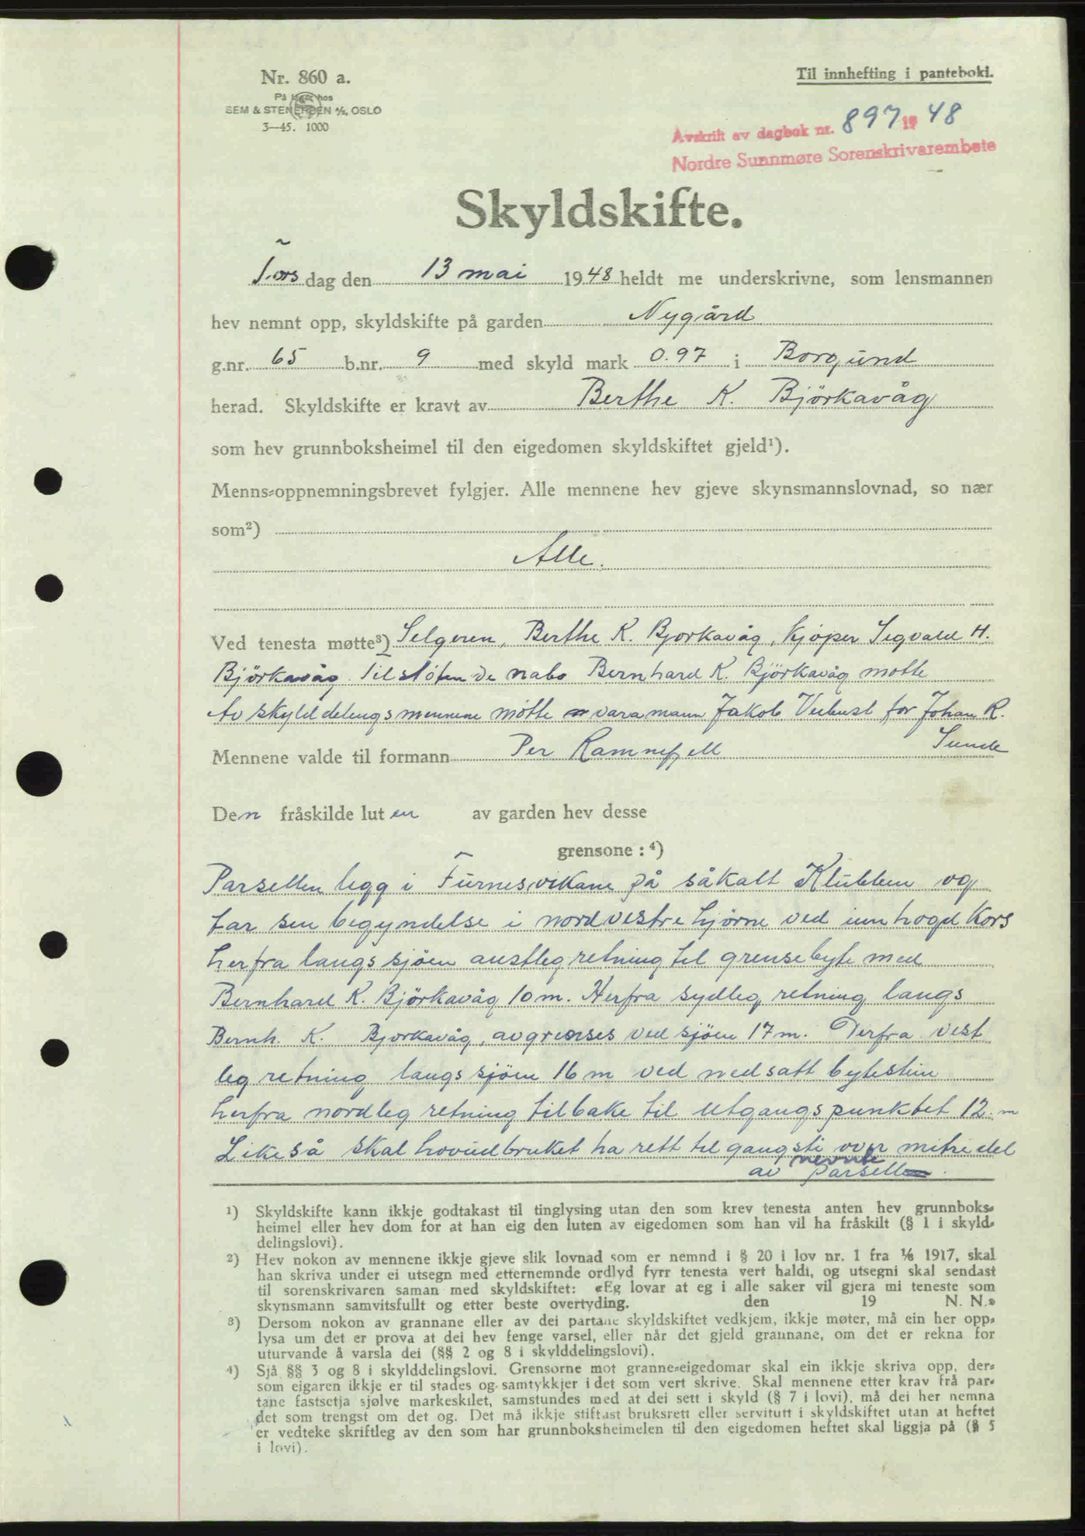 Nr. 860 a.
På lager hos
SEM & STENERSEN A/S, OSLO
3—45. 1000
Til innhefting i panteboki.
Avskrift av dagbok nr. 897 1948
Nordre Sunnmøre Sorenskrivarembete
Skyldskifte.
Torsdag den 13 mai 1948 heldt me underskrivne, som lensmannen
hev nemnt opp, skyldskifte på garden Nygård
g.nr. 65 b.nr. 9 med skyld mark 0.97 i Borgund
herad. Skyldskifte er kravt av Berthe K. Björkavåg
som hev grunnboksheimel til den eigedomen skyldskiftet gjeld¹).
Menns-oppnemningsbrevet fylgjer. Alle mennene hev gjeve skynsmannslovnad, so nær
som²)
Alle.
Ved tenesta møtte³) Selgeren, Berthe K. Bjorkavåg, kjøper Sigvald H.
Björkavåg Tilstøtende nabo Bernhard K. Björkavåg møtte
Av skylddelingsmennene møtte varamann Jakob Vebust for Johan R.
Sunde
Mennene valde til formann Per Ramnefjell
Den fråskilde luten av garden hev desse
grensone : ⁴)
Parsellen ligg i Furnesvikane på såkalt Klubben og
tar sin begyndelse i nordvestre hjørne ved innhogd kors
herfra langs sjøen austleg retning til grensebyte med
Bernhard K. Björkavåg 10 m. Herfra sydleg retning langs
Bernh. K. Bjorkavåg, avgrenses ved sjöen 17 m. Derfra vest
leg retning langs sjöen 16 m ved nedsatt bytestein
herfra nordleg retning tilbake til utgangspunktet 12 m
Likeså skal hovudbruket ha rett til gangsti over midtre del
av nevnte parsell
¹) Skyldskifte kann ikkje godtakast til tinglysing utan den som krev tenesta anten hev grunnboks-
heimel eller hev dom for at han eig den luten av eigedomen som han vil ha fråskilt (§ 1 i skyld-
delingslovi).
²) Hev nokon av mennene ikkje gjeve slik lovnad som er nemnd i § 20 i lov nr. 1 fra 1/6 1917, skal
han skriva under ei utsegn med etternemnde ordlyd fyrr tenesta vert haldi, og utsegni skal sendast
til sorenskrivaren saman med skyldskiftet: «Eg lovar at eg i alle saker vil gjera mi teneste som
skynsmann samvitsfullt og etter beste overtyding. den 19 N. N.»
³) Dersom nokon av grannane eller av dei partane skyldskiftet vedkjem, ikkje møter, må ein her opp-
lysa um det er prova at dei hev fenge varsel, eller når det gjeld grannane, om det er rekna for
uturvande å varsla dei (§§ 2 og 8 i skylddelingslovi).
⁴) Sjå §§ 3 og 8 i skylddelingslovi. Grensorne mot granne-eigedomar skal ein ikkje skriva opp, der-
som eigaren ikkje er til stades og samtykkjer i det som vert skrive. Skal mennene etter krav frå par-
tane fastsetja sjølve markeskilet, samstundes med at dei sett i skyld (§ 7 i lovi), må dei her nemna
det som trengst om det og. Det må ikkje stiftast bruksrett eller servitutt i skyldskiftet utan at heftet
er vedteke skriftleg av den som har grunnboksheimelen til den eigedomen heftet skal liggja på (§ 5
i lovi).